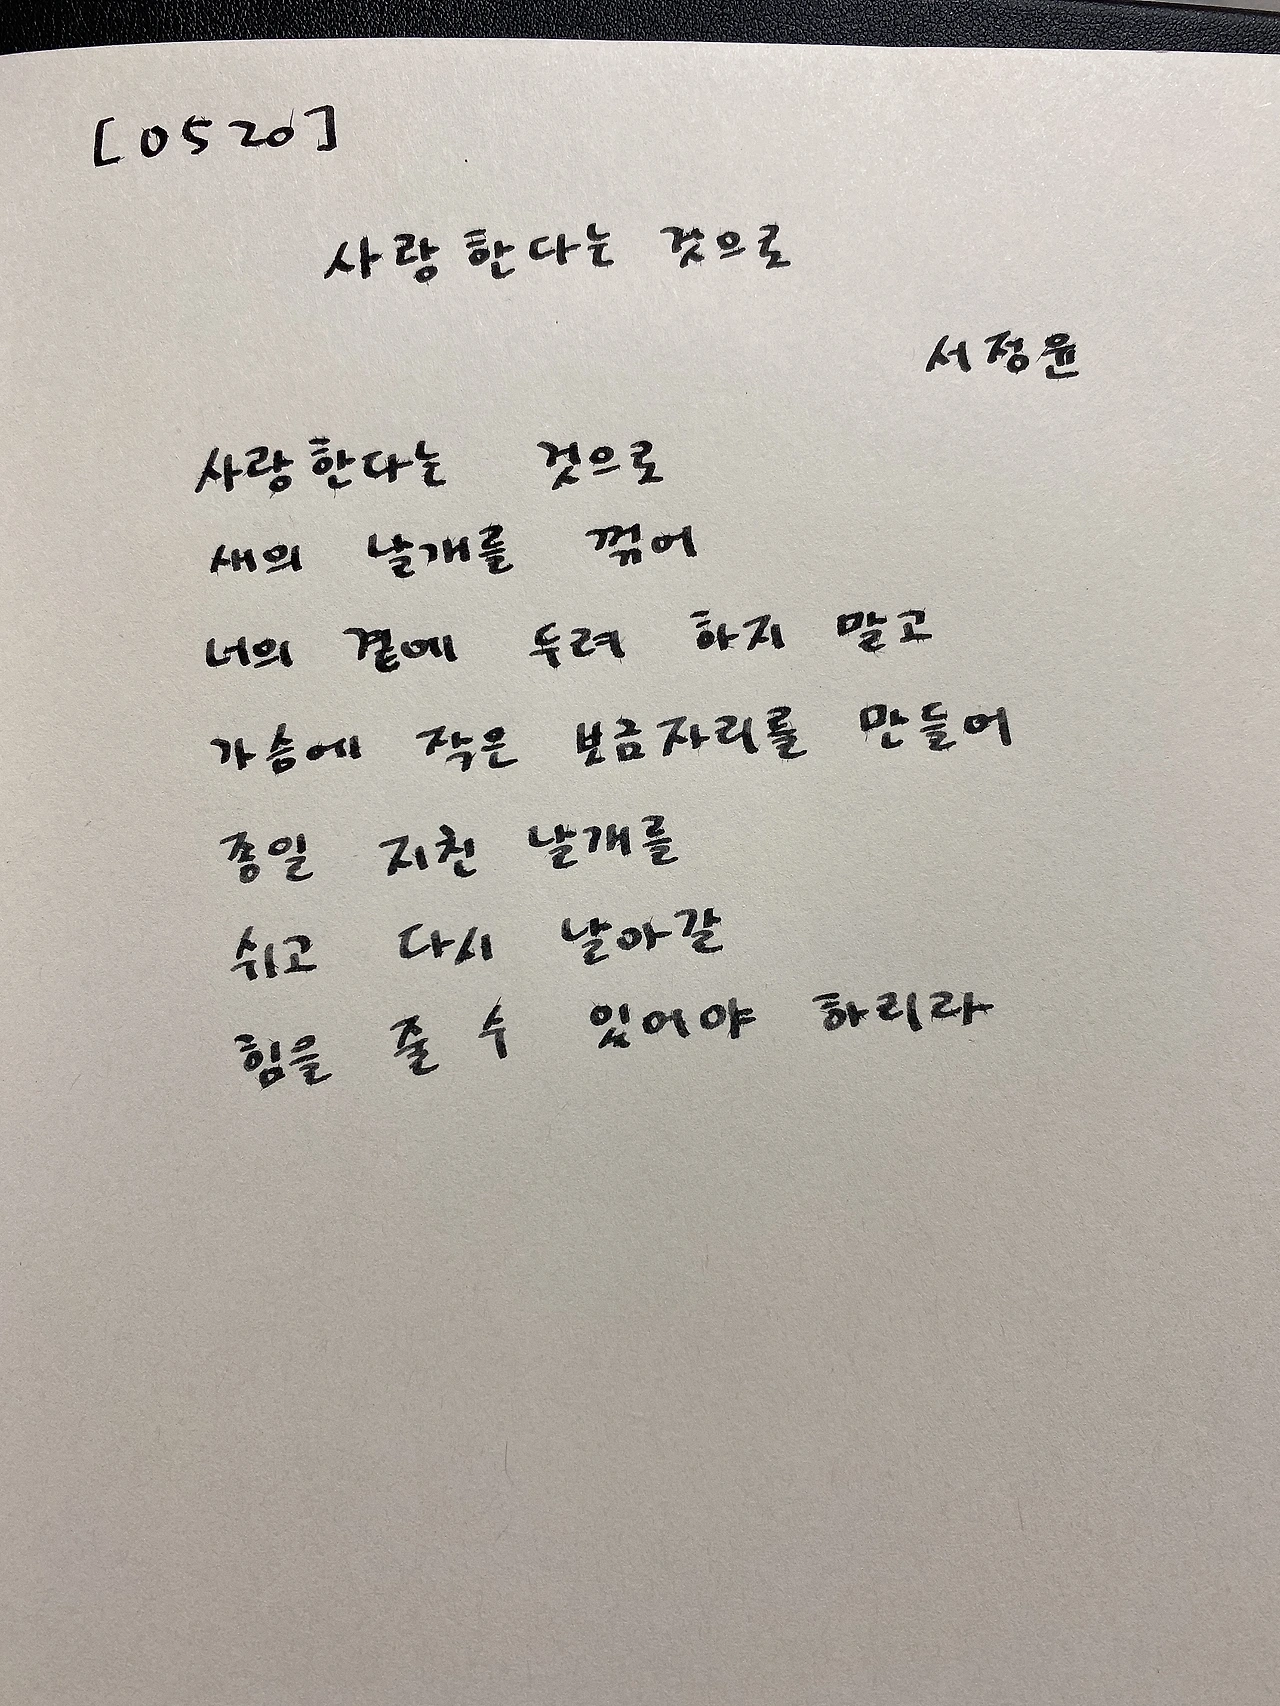 [0520]
사랑한다는 것으로
서정윤
사랑한다는 것으로
새의 날개를 꺾어
너의 곁에 두려 하지 말고
가슴에 작은 보금자리를 만들어
종일 지친 날개를
쉬고 다시 날아갈
힘을 줄 수 있어야 하리라